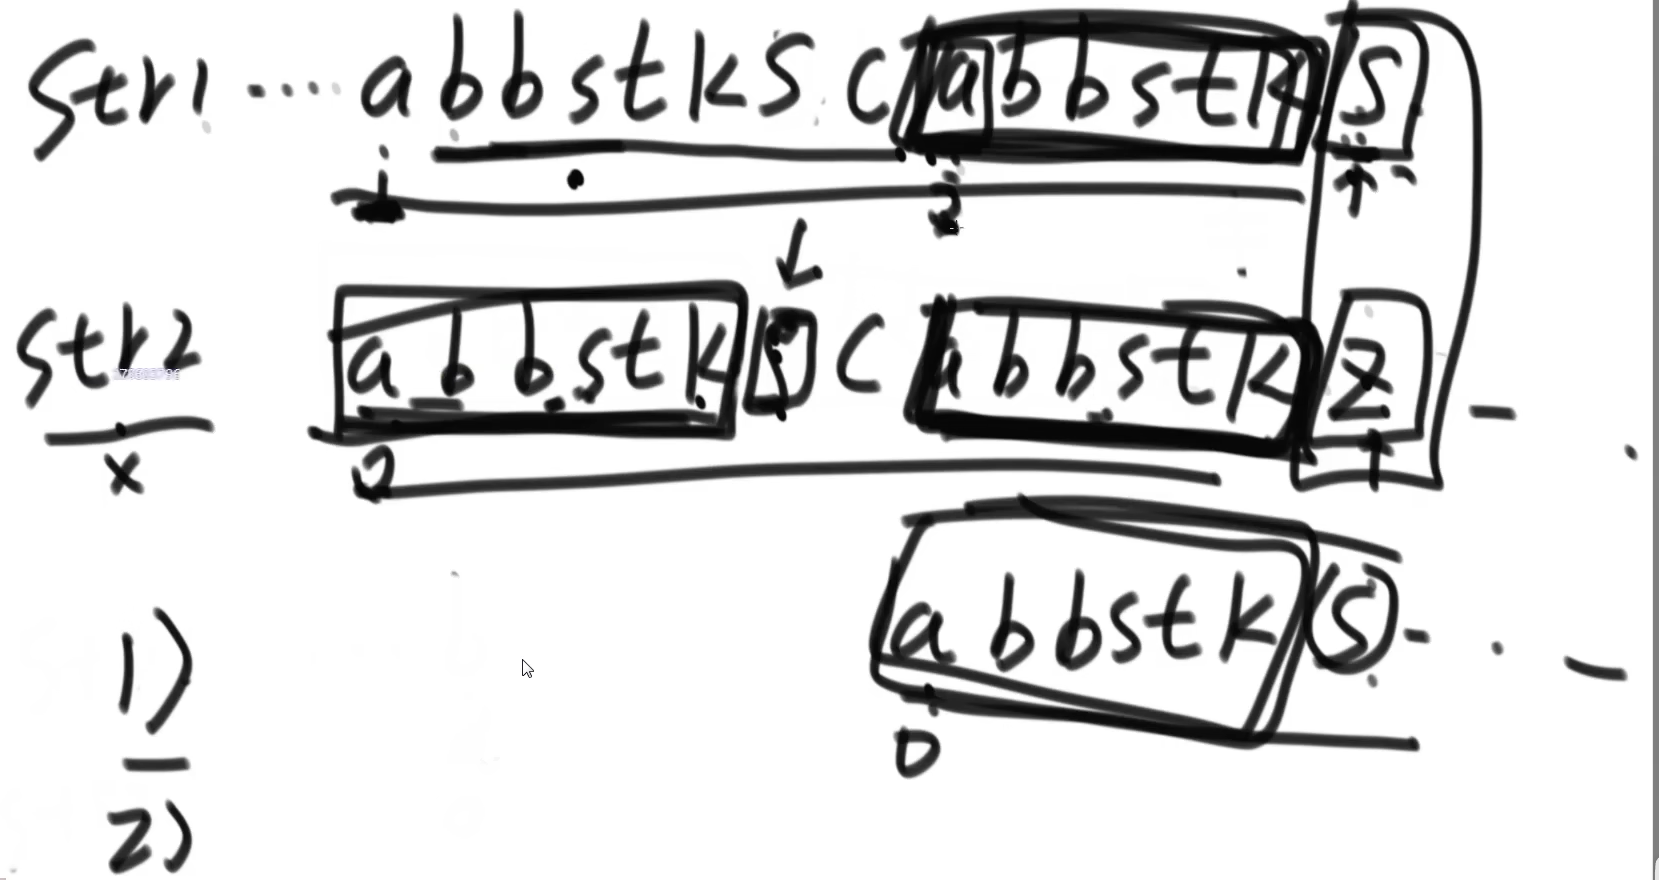 str1 .... a b b s t k s c a b b s t k s
i j
str2 a b b s t k s c a b b s t k z
x 0
a b b s t k s
0
1)
2)